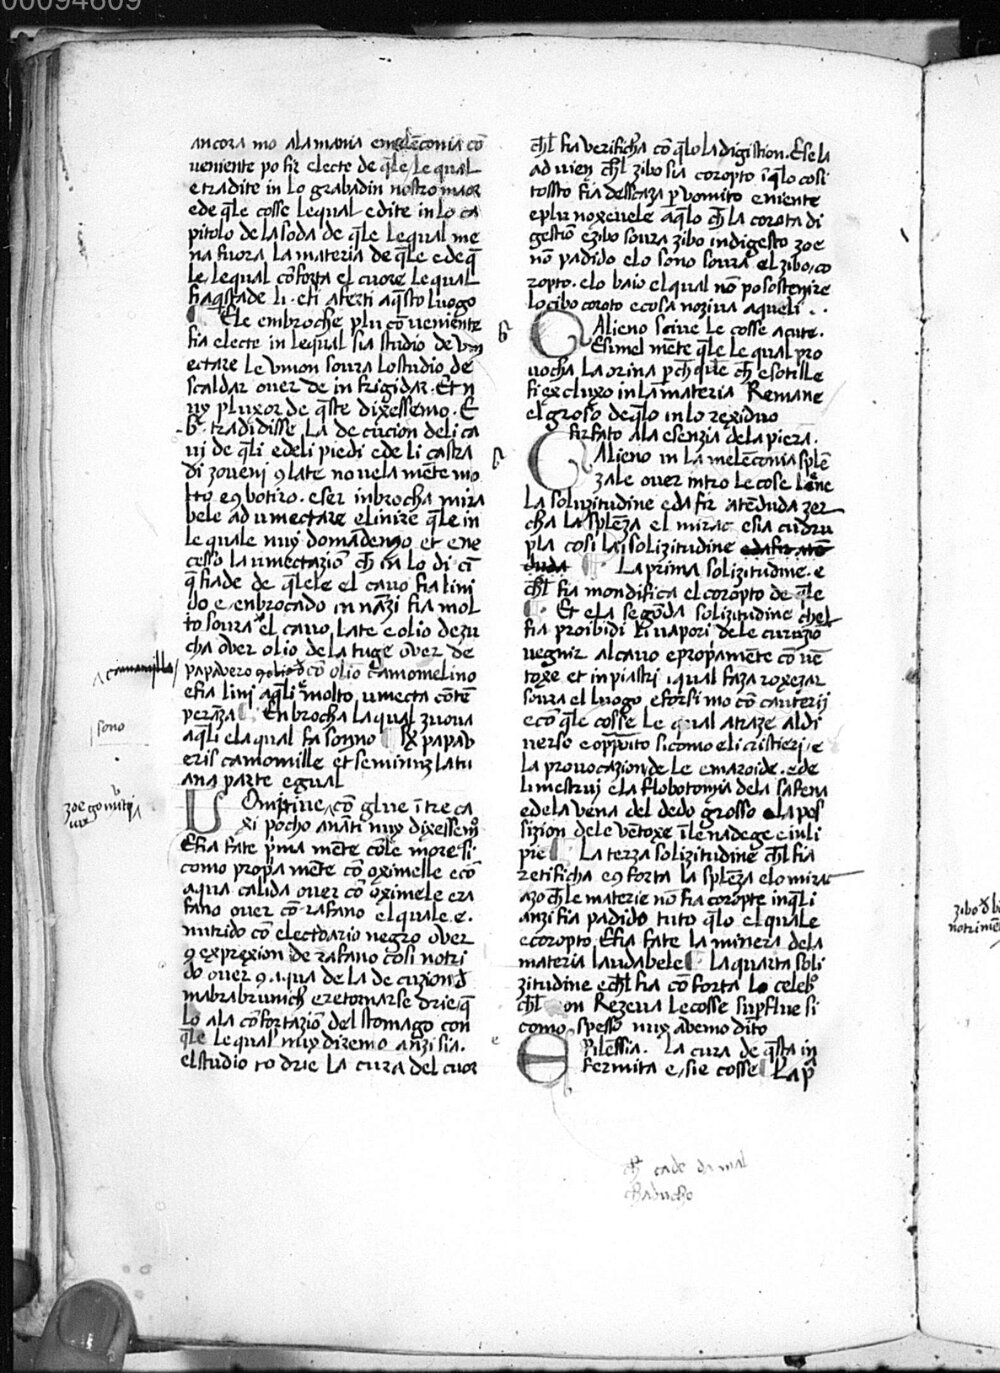 00094609
ancora mo ala mania e melēconia cō
ueniente po fir electe de q̄le le qual
e tradite in lo grabadin nostro maor
e de q̄le cosse le qual e dite in lo ca
pitolo de la soda de q̄le le qual me
na fuora la materia de q̄le e de q̄
le le qual cōforta el cuore le qual
li eti atenti a questo luogo
E le embroche plu cōueniente
sia electe in le qual sia studio de vm
ectare le vmori soura lo studio de
scaldar ouer de infrigidar. Et n
uy pluxor de q̄ste dixessemo. E
tradidisse la decucion deli ca
ui de q̄li e deli piedi e de li castra
di zoueni 9 late nouelamēte mo
lto e 9 botiro. e ser inbrocha mira
bele ad umectare e linire q̄le in
le quale nuy domādemo et ene
cesso la umectaziō ch in lo di ci
q̄ fiade de q̄lele el cauo fia lini
do e enbrocado in nāzi fia mol
to soura el cauo late e olio de zu
cha ouer olio de la tuge ouer de
papauero cō olio camomelino
e fia lini aq̄li e molto umecta cōtē
perāza Enbrocha la qual zuoua
aq̄li e la qual fa sonno Rx papau
eris camomille et seminis latu
ana parte egual
Omitiue cō glue ītre ca
xi pocho anāti nuy dixessemo
E fia fate p̄ma mēte cōle more si
como propa mēte cō oximelle e cō
aqua calida ouer cō oximele era
fano ouer cō rafano el quale e
nutrido cō electoario negro ouer
9 expression de rafano cosi notri
do ouer 9 aqua de la decuzion d
mabrabrunich e retornarse drie q̄
lo ala cōfortaziō del stomago con
q̄le le qual nuy diremo anzi sia.
el studio to drie la cura del cuor
chl fia verificha cō q̄lo la digistion. E se la
aduien chl zibo sia coropto ī q̄lo cosi
tossto fia descaza p vomito e niente
e plu noxeuele aq̄lo ch la corota di
gestiō e zibo soura zibo indigesto zoe
nō padido e lo sono soura el zibo co
ropto. e lo baio el qual nō po sostenire
lo cibo coroto e cosa noziua aqueli.
Alieno sciue le cosse acute.
E simel mēte q̄le le qual pro
uocha la orina p ch que ch e sotille
fi excluxo in la materia Remane
el groso de q̄lo in lo rexiduo
fir fato ala esenzia dela piera.
Alieno in la melēconia splē
zale ouer intro le cose lene
La solizitudine e da fir atēduda zer
cha la splēza e l mirac e sia cudru
pla cosi la solizitudine e da fir atē
duda La prima solizitudine. e
chl fia mondifica el coropto de q̄le
Et e la segōda solizitudine chel
fia proibidi li uapori dele curuziō
uegnir al cauo e propamēte cō uē
toxe et inpiastri i qual faza roxezar
soura el luogo e forsi mo cō cauterij
e cō q̄le cosse le qual atraze al di
uerso e opp̄uito si como e li cristieri e
la prouocazion de le emaroide. e de
li mestrui e la flobotomia dela safena
e dela vena del dedo grosso e la pos
sizion dele vētoxe ī le nadege e in li
pie La terza solizitudine chl fia
retificha e 9forta la splēza e lo mirac
azo ch le materie nō fia coropte in q̄li
anzi fia padido tuto q̄lo el quale
e coropto E fia fate la minera dela
materia laudabele La quarta soli
zitudine e chl fia cōforta lo celebo
chl non Rezeua le cosse supflue si
como spesso nuy abemo dito
Pilēssia. La cura de q̄sta in
fermita e, sie cosse La p̄
camamilla
sono
zoe gomiti
ch cade da mal
chaducho
zibo